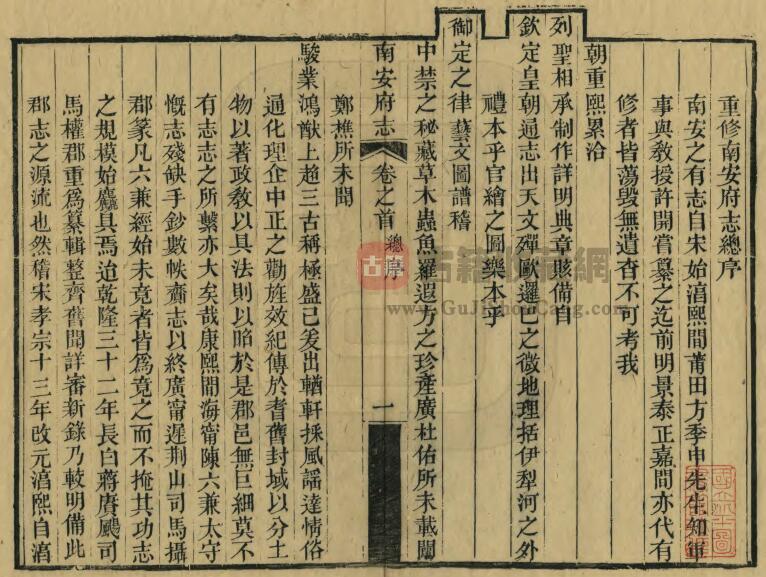 重修南安府志總序
南安之有志自宋始淳熙間莆田方季申先生知軍
事與教授許開嘗纂之迄前明景泰正嘉間亦代有
修者皆蕩毀無遺杳不可考我
朝重熙累洽
列聖相承制作詳明典章賅備自
欽定皇朝通志出天文殫歐邏巴之徵地理括伊犁河之外
禮本乎官繪之圖樂本乎
御定之律藝文圖譜稽
中禁之秘藏草木蟲魚羅遐方之珍產廣杜佑所未載闡
南安府志
卷之首
總序
一
鄭樵所未聞
駿業鴻猷上超三古稱極盛已爰出輶軒採風謡達情俗
通化理企中正之勸旌效紀傳於耆舊封域以分土
物以著政教以具法則以昭於是郡邑無巨細莫不
有志志之所繫亦大矣哉康熙間海甯陳六兼太守
慨志殘缺手鈔數帙齎志以終廣甯遲荆山司馬攝
郡篆凡六兼經始未竟者皆爲竟之而不掩其功志
之規模始麤具焉迨乾隆三十二年長白蔣賡颺司
馬權郡重爲纂輯整齊舊聞詳審新錄乃較明備此
郡志之源流也然稽宋孝宗十三年改元淳熙自淳
古籍收藏網
www.GuJiShouCang.com